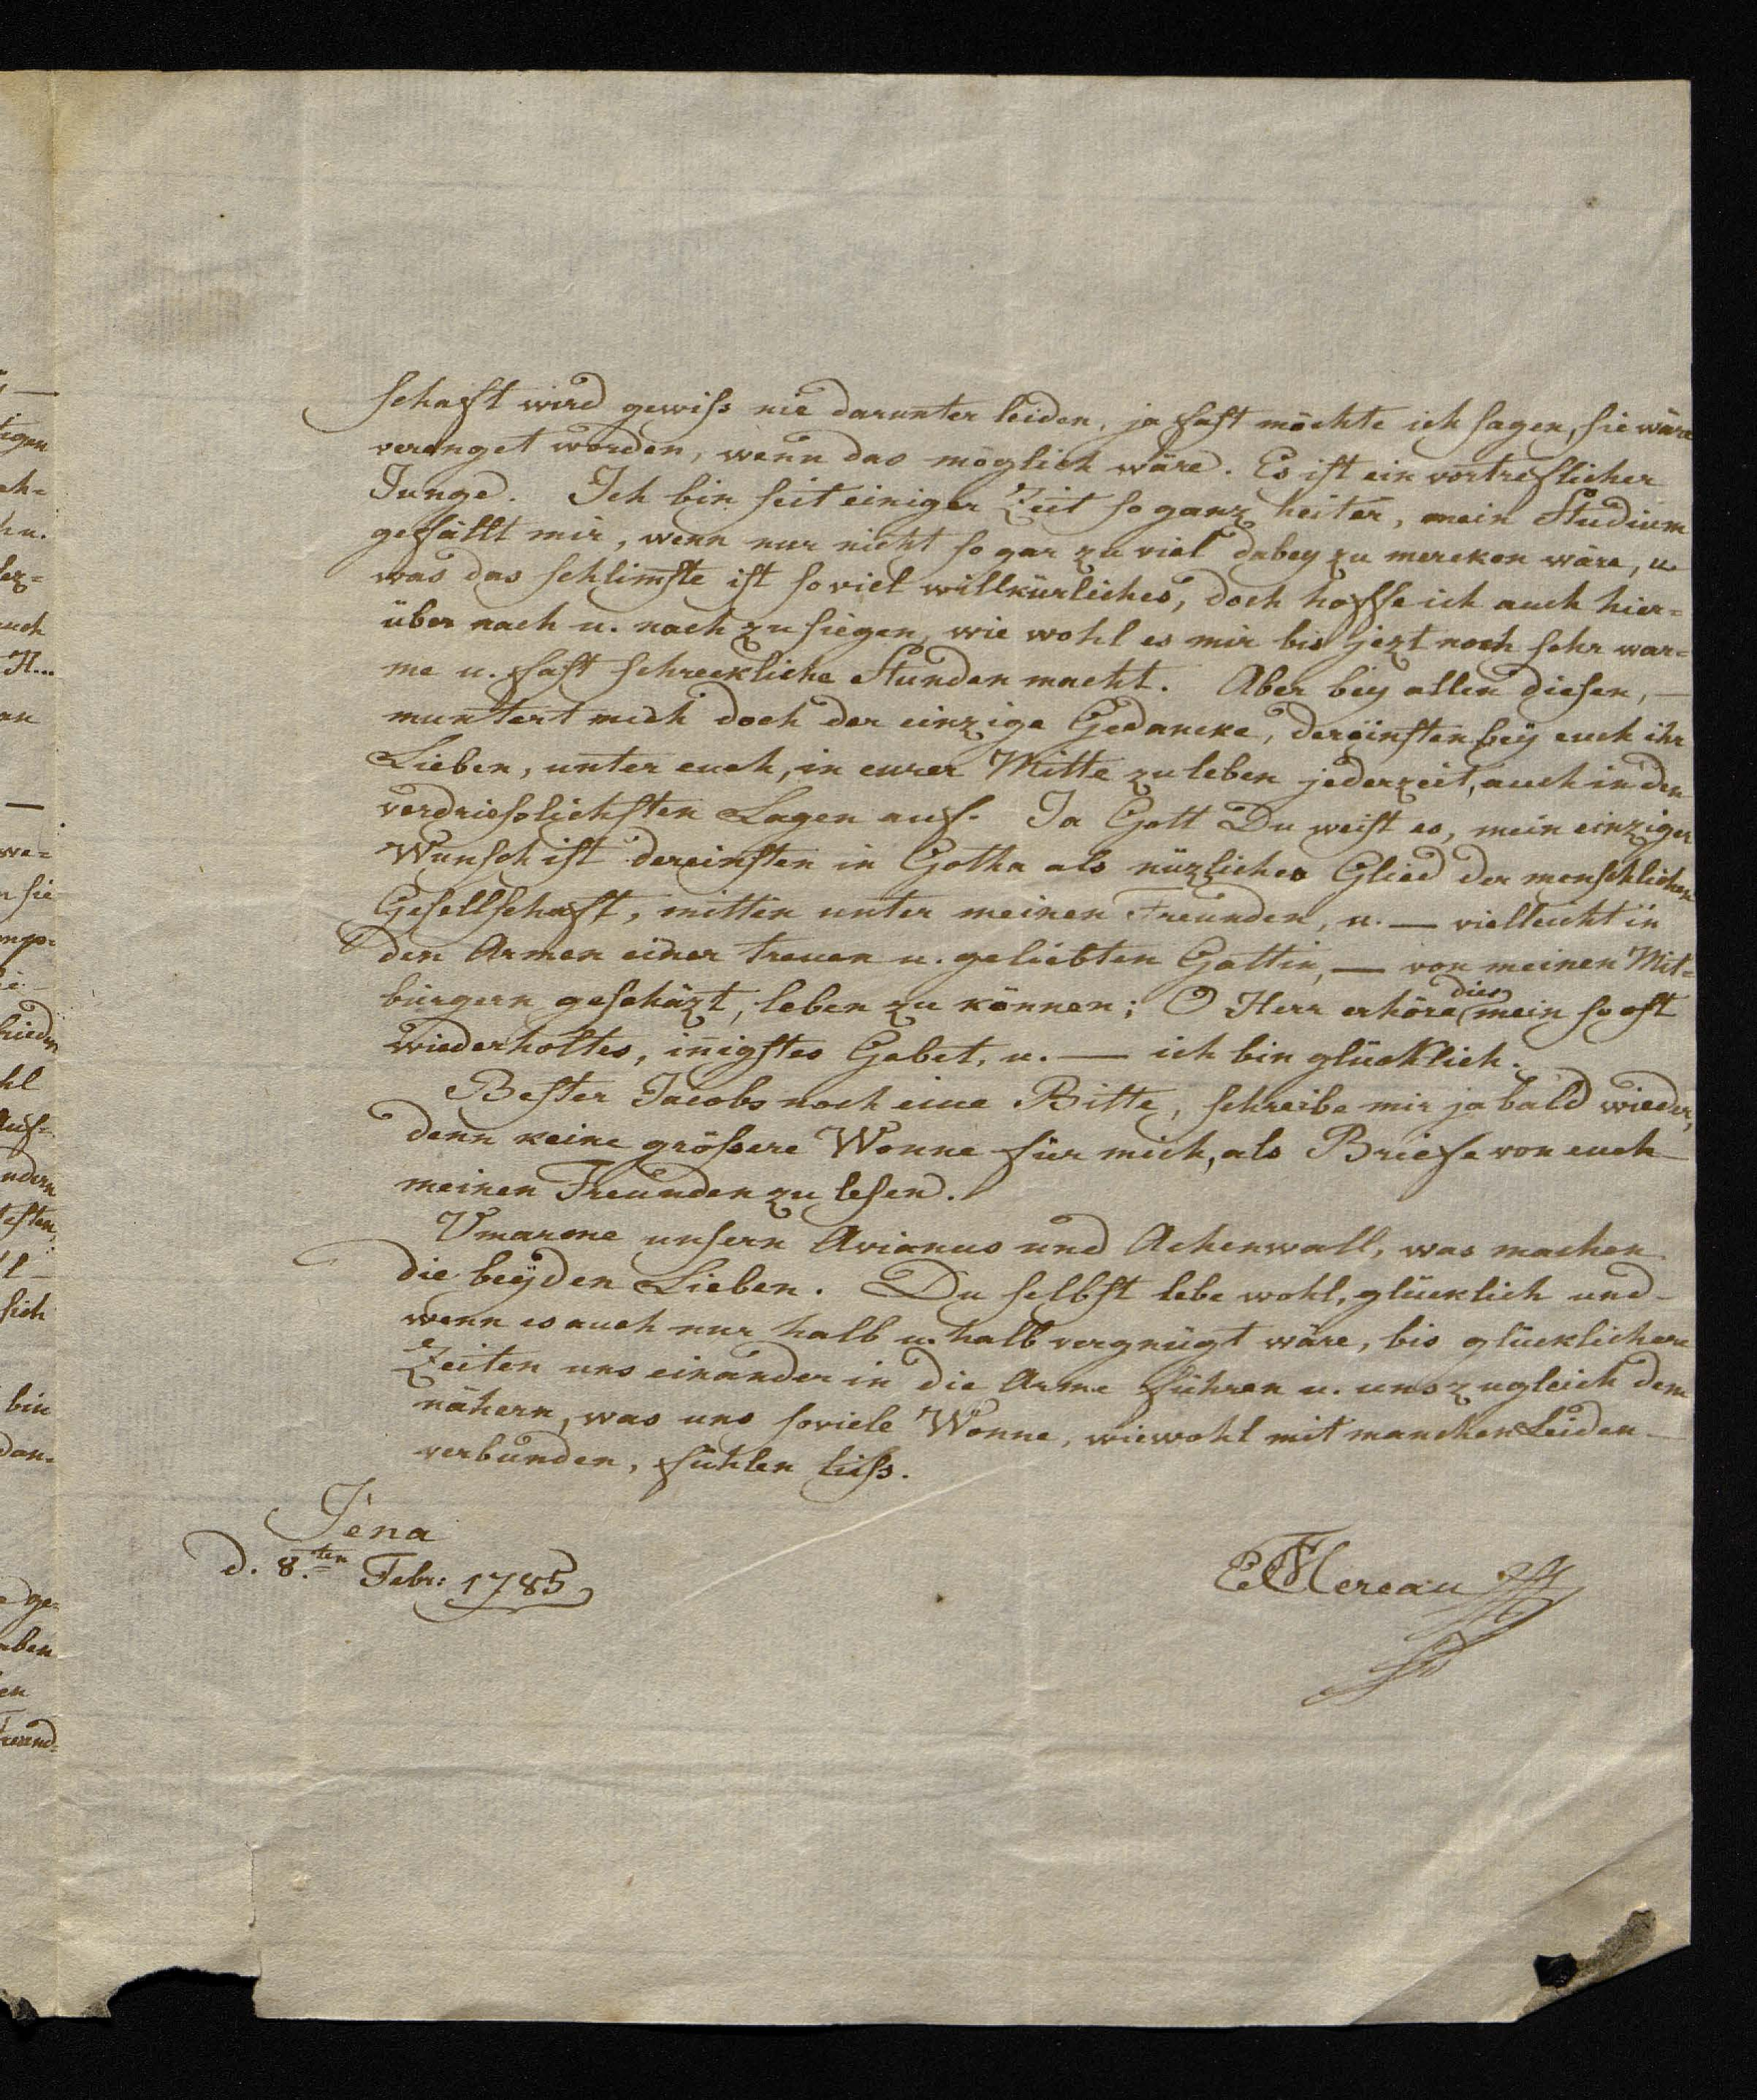 schaft wird gewiss nie darunter leiden, ja fast möchte ich sagen, sie wäre
verenget worden, wenn das möglich wäre. Es ist ein vortreflicher
Junge. Ich bin seit einiger Zeit so ganz heiter, mein Studium
gefällt mir, wenn nur nicht so gar zu viel dabey zu mercken wäre, u.
was das schlimste ist so viel willkürliches, doch hoffe ich auch hier=
über nach u. nach zu siegen, wie wohl es mir bis jezt noch sehr war=
me u. fast schreckliche Stunden macht. Aber bey allen diesen, —
muntert mich doch der einzige Gedancke, dereinsten bey euch ihr
Lieben, unter euch, in eurer Mitte zu leben jederzeit, auch in den
verdrieslichsten Lagen auf. Ja Gott Du weist es, mein einziger
Wunsch ist dereinsten in Gotha als nüzliches Glied der menschlichen
Gesellschaft, mitten unter meinen Freunden, u. — vielleicht in
den Armen einer treuen u. geliebten Gattin, — von meinen Mit=
bürgern geschäzt, leben zu können; O Herr erhöre dies mein so oft
wiederholtes, inigstes Gebet, u. — ich bin glücklich.
Bester Jacobs noch eine Bitte, schreibe mir ja bald wieder,
denn keine grössere Wonne für mich, als Briefe von euch
meinen Freunden zu lesen.
Umarme unsern Arianus und Achenwall, was machen
die beyden Lieben. Du selbst lebe wohl, glücklich und
wenn es auch nur halb u. halb vergnügt wäre, bis glücklichere
Zeiten uns einander in die Arme führen u. uns zugleich dem
nähern, was uns soviele Wonne, wiewohl mit manchen Leiden
verbunden, fühlen liess.
Jena
d. 8.ten Febr: 1785
Mereau